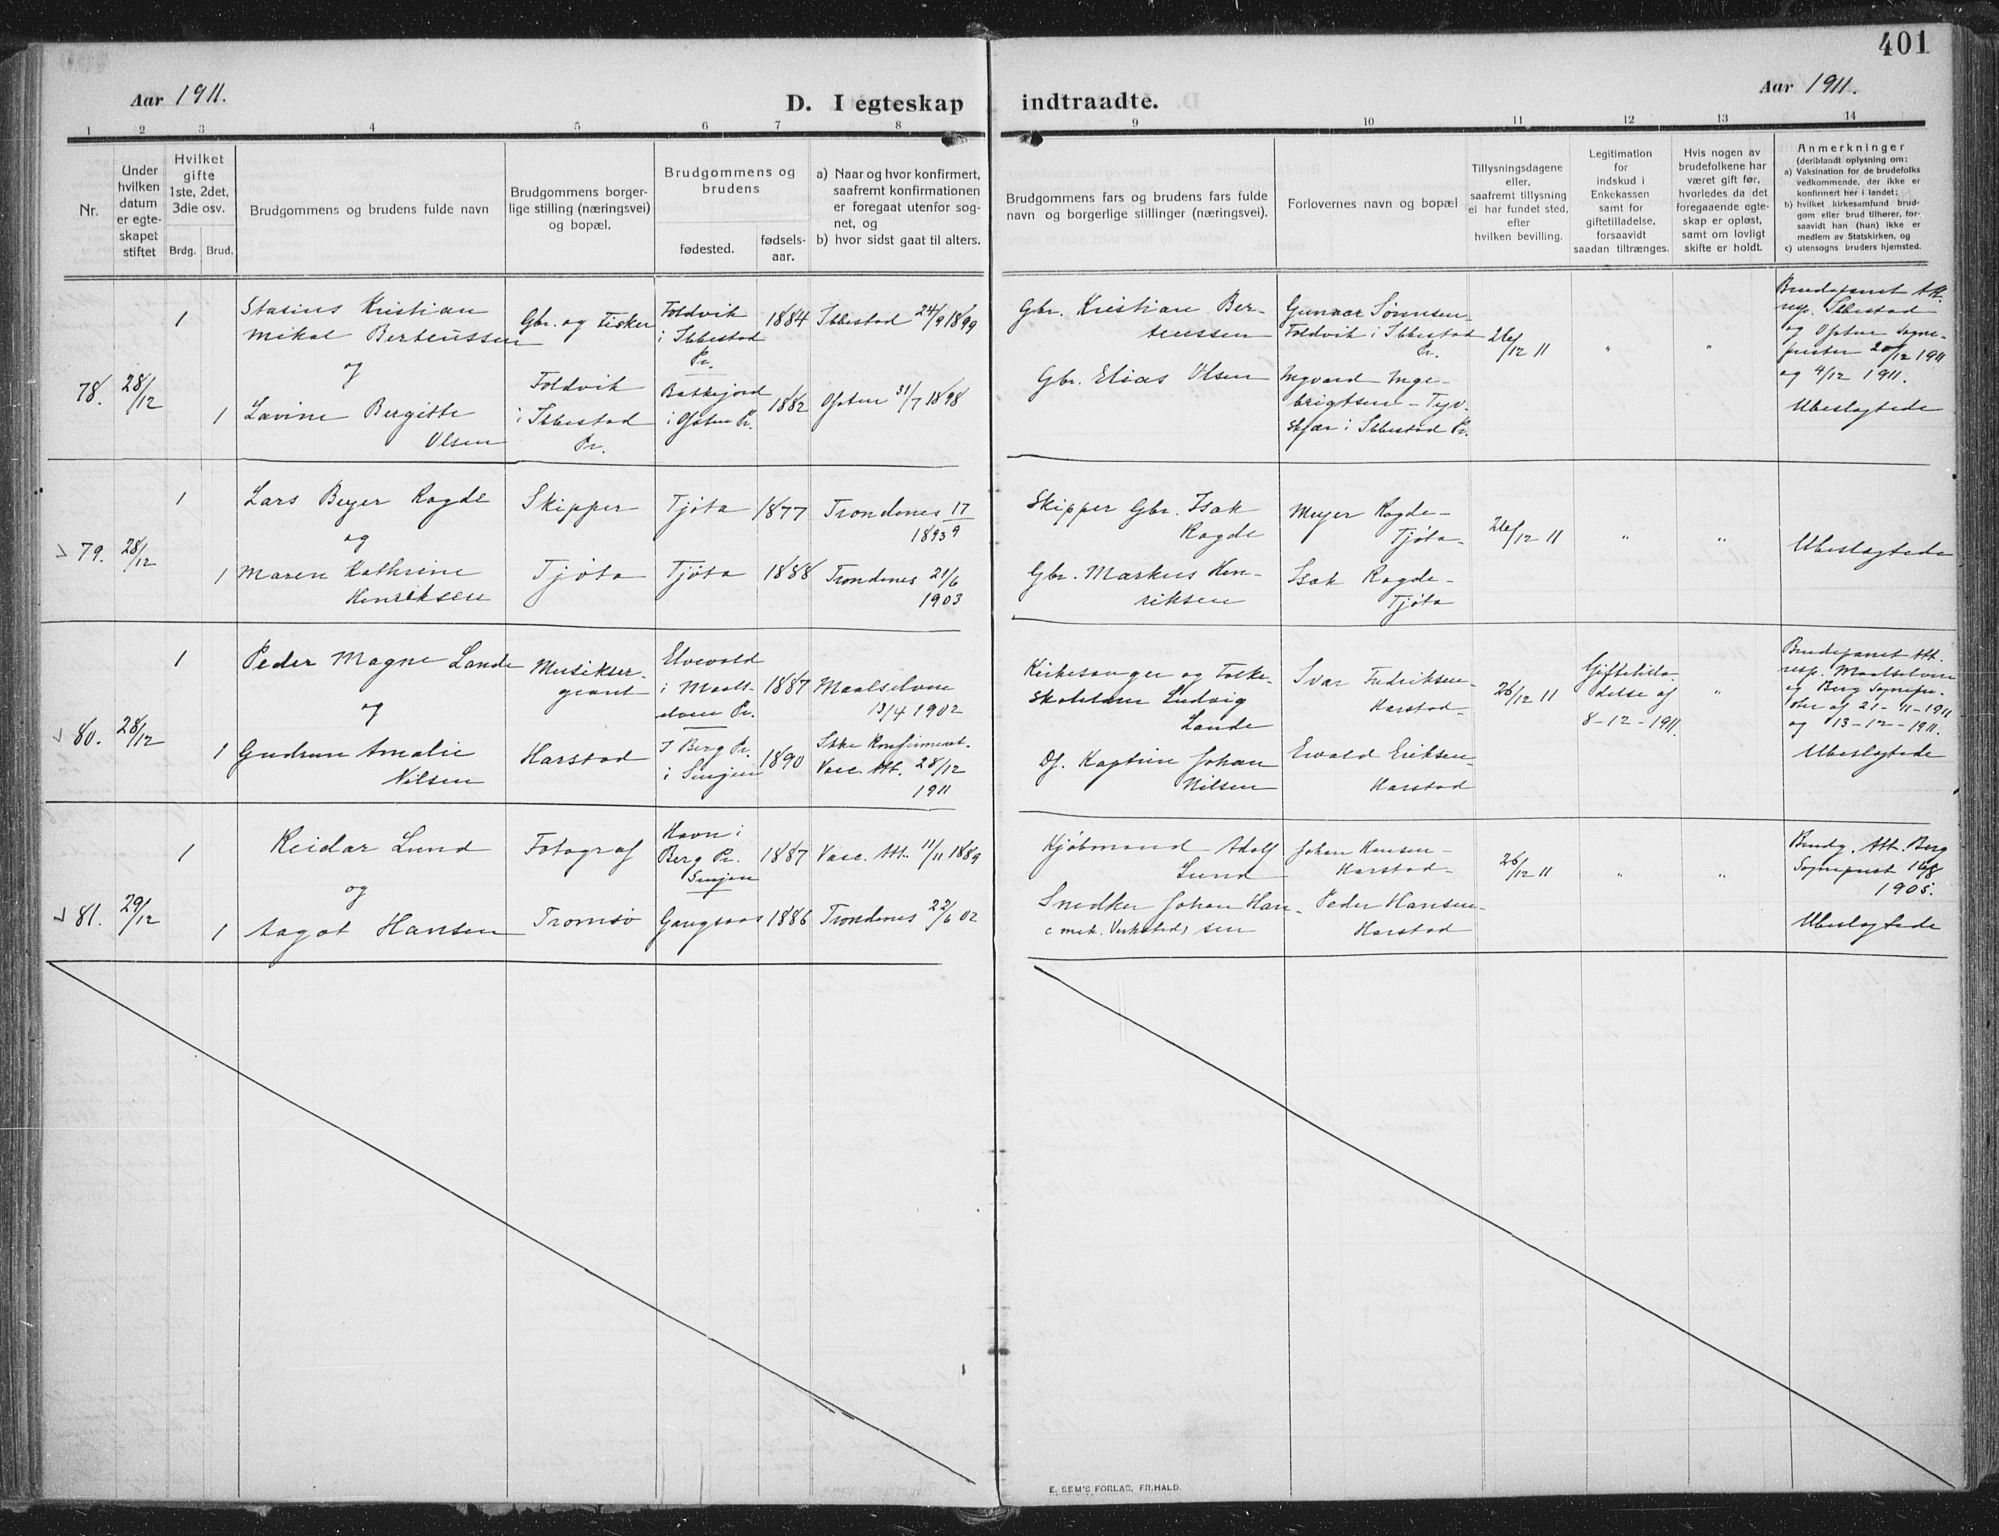 401
Aar 1911.
D. I egteskap indtraadte.
Aar 1911.
1 2 3 4 5 6 7 8 9 10 11 12 13 14
Nr.
Under
hvilken
datum
er egte-
skapet
stiftet
Hvilket
gifte
1ste, 2det,
3die osv.
Brdg. Brud.
Brudgommens og brudens fulde navn
Brudgommens borger-
lige stilling (næringsvei)
og bopæl.
Brudgommens og
brudens
fødested.
fødsels-
aar.
a) Naar og hvor konfirmert,
saafremt konfirmationen
er foregaat utenfor sog-
net, og
b) hvor sidst gaat til alters.
Brudgommens fars og brudens fars fulde
navn og borgerlige stillinger (næringsvei).
Forlovernes navn og bopæl
Tillysningsdagene
eller,
saafremt tillysning
ei har fundet sted,
efter
hvilken bevilling.
Legitimation
for
indskud i
Enkekassen
samt for
giftetilladelse,
forsaavidt
saadan tiltrænges.
Hvis nogen av
brudefolkene har
været gift før,
hvorledes da det
foregaaende egte-
skap er opløst,
samt om lovligt
skifte er holdt.
Anmerkninger
(deriblandt oplysning om:
a) Vaksination for de brudefolks
vedkommende, der ikke er
konfirmert her i landet;
b) hvilket kirkesamfund brud-
gom eller brud tilhører, for-
saavidt han (hun) ikke er
medlem av Statskirken, og
c) utensogns bruders hjemsted.
78. 28/12
1
Stasius Kristian
Mikal Berteussen
og
1 Lavine Bergitte
Olsen
Gbr. og Fisker
Foldvik
i Ibbestad
Pr.
Foldvik
i Ibbestad
Pr.
1884
Ibbestad 24/9 1899
i Ofoten Pr.
1882
Ofoten 31/7 1898
Gbr. Kristian Ber-
teussen
Gbr. Elias Olsen
Gunnar Sønnsen
Foldvik i Ibbestad
Pr.
Ingvard Inge-
brigtsen - Tyv-
skjær i Ibbestad Pr.
26/12 11
" "
Brudeparret Att.
resp. Ibbestad
og Ofoten Sogne-
prester 20/12 1911
og 4/12 1911.
Ubeslægtede
79. 28/12
1
Lars Beyer Ragde
og
1 Maren Kathrine
Henriksen
Skipper
Tjøta
Tjøta 1877 Trondenes 17/9
1893
Tjøta 1888 Trondenes 21/6
1903
Skipper Gbr. Isak
Ragde
Gbr. Markus Hen-
riksen
Meyer Ragde-
Tjøta-
Isak Ragde-
Tjøta
26/12 11
" "
Ubeslægtede
80. 28/12
1
Peder Magne Lande
og
1 Gudrun Amalie
Nilsen
Musikser-
giant
Harstad
Elvevold
i Maals-
elven Pr.
1887
Maalselven
13/4 1902
I Berg Pr.
i Senjen
1890
Ikke Konfirmeret.
Vacc. Att. 28/12
1911
Kirkesanger og Folke-
skolelærer Ludvig
Lande
Df. Kaptein Johan
Nilsen
Ivar Fredriksen
Harstad-
Ewald Eriksen
Harstad
26/12 11
Giftetilla-
delse af
8-12-1911.
"
Brudeparret Att.
resp. Maalselven
og Berg Sognepre-
ster af 21-11-1911
og 13-12-1911.
Ubeslægtede
81. 29/12
1
Reidar Lund
og
1 Aagot Hansen
Fotograf
Tromsø
Havn i
Berg Pr.
Senjen
1887
Vacc. Att. 11/11 1889
Gangsaas 1886 Trondenes 22/6 02
Kjøbmand Adolf
Lund
Snedker Johan Han-
(mek. Verksted) sen
Johan Hansen-
Harstad-
Peder Hansen-
Harstad
26/12 11
" "
Brudg. Att. Berg
Sogneprest 16/8
1905.
Ubeslægtede
E. SEM'S FORLAG, FR.HALD.